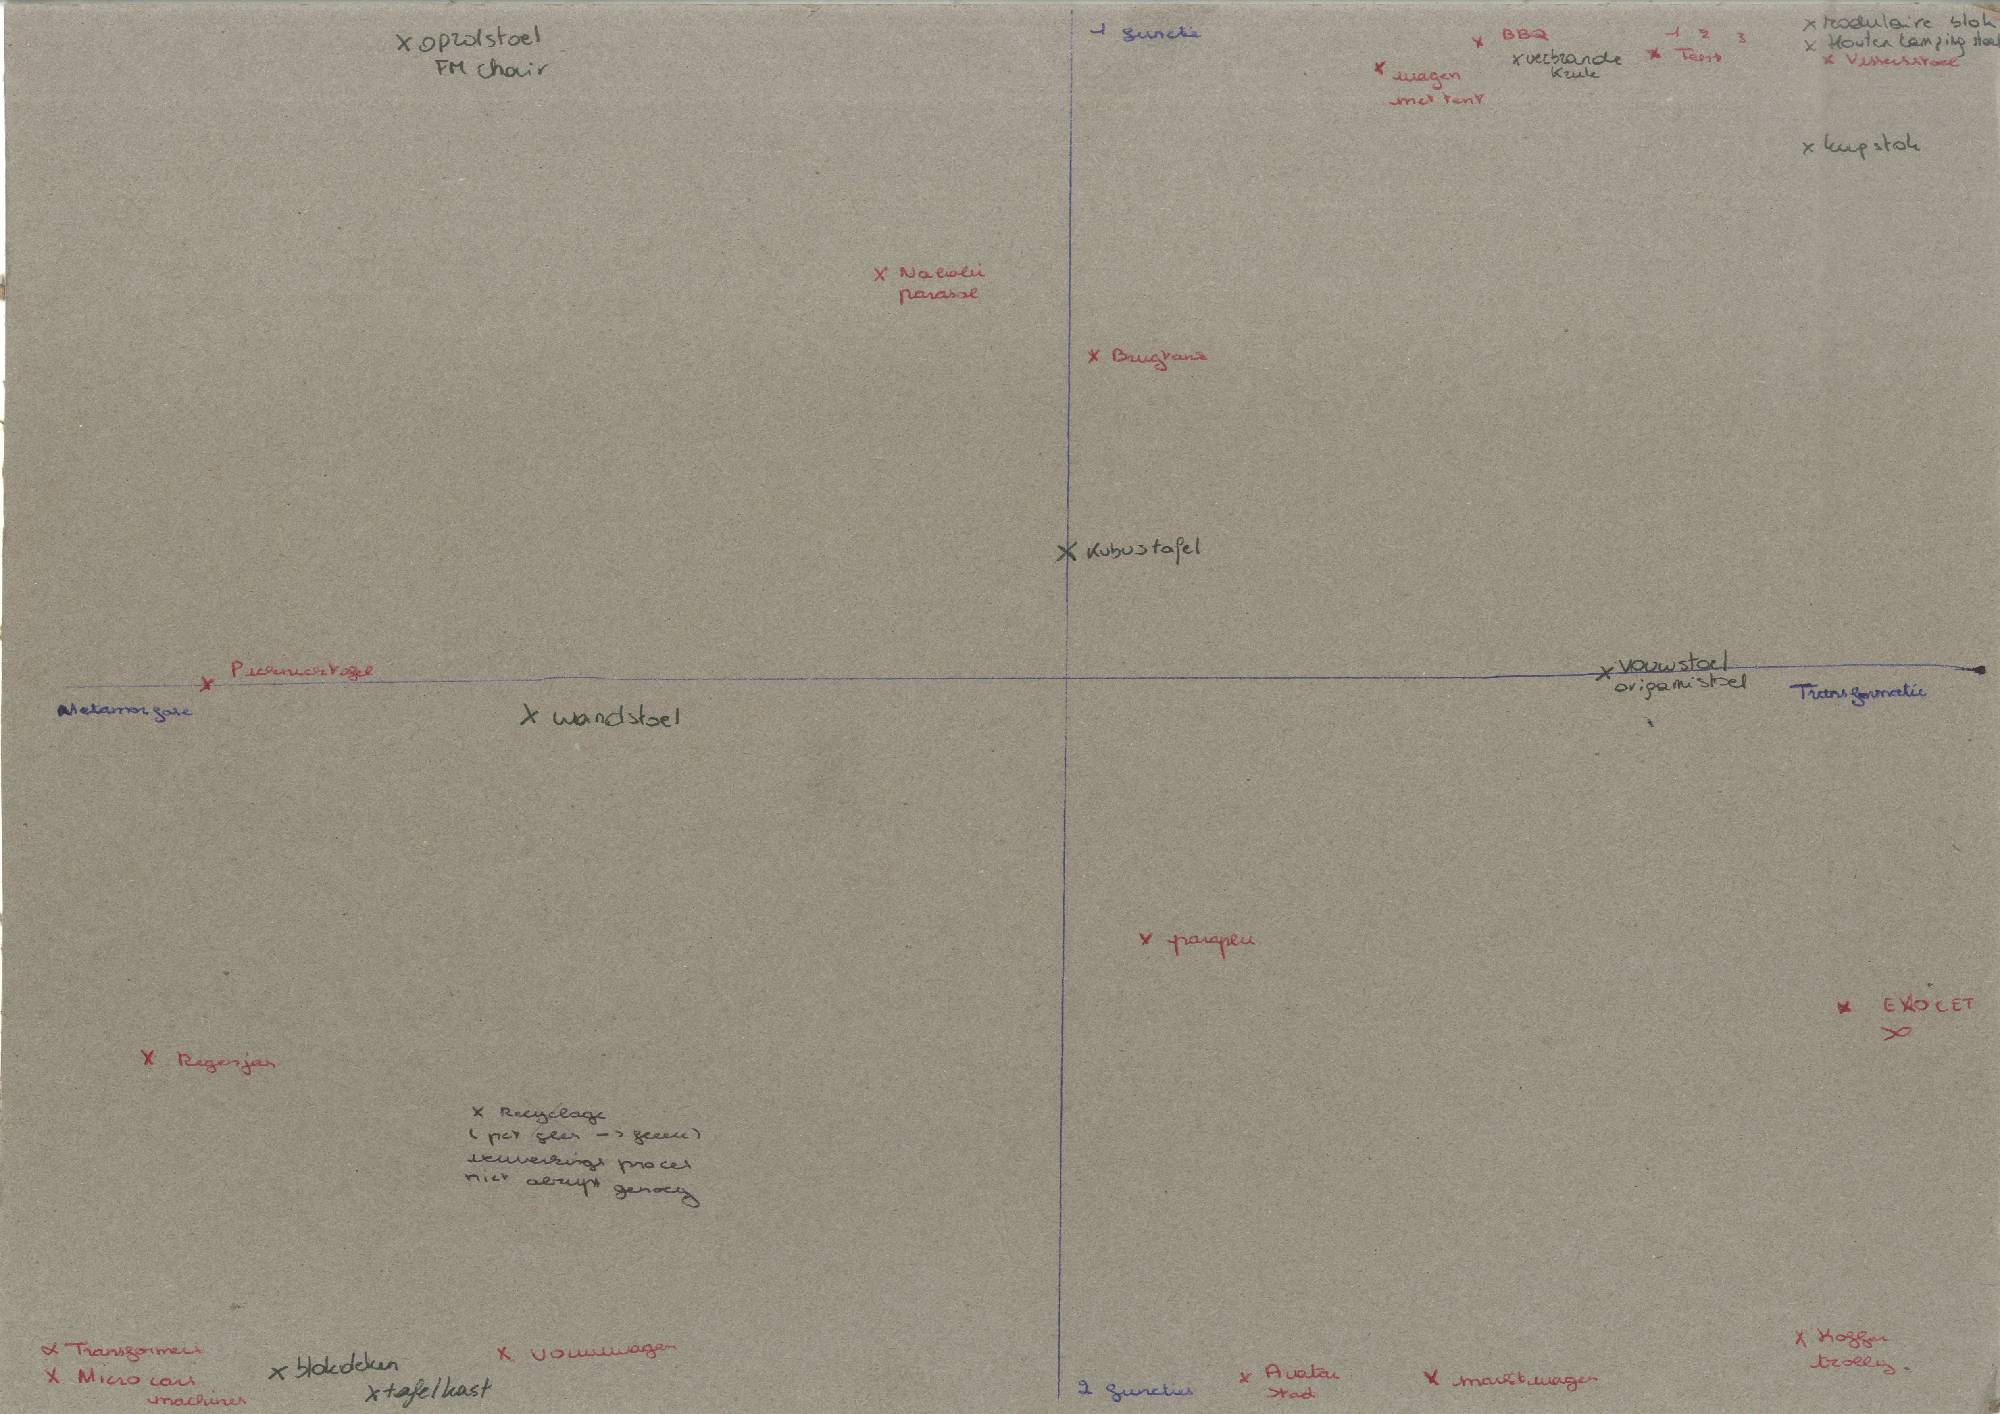 x oprolstoel
FM chair
1 functie
x BBQ
x verbrande
kruk
1 2 3
x Tent
x modulaire blok
x Houten camping stoel
x Vissersstoel
x wagen
met tent
x kapstok
x
parasol
x Brugkraan
x Kubustafel
x Picknicktafel
Metamorfose
x wandstoel
x vouwstoel
origamistoel
Transformatie
x paraplu
x EXOCET
x Regenjas
x Recyclage
(pet fles -> fleece)
verwerkings proces
niet abrupt genoeg
x Transformers
x Micro cars
machines
x blokdeken
x tafelkast
x vouwwagen
2 functies
x Avatar
stad
x marktwagen
x Koffer
trolley.